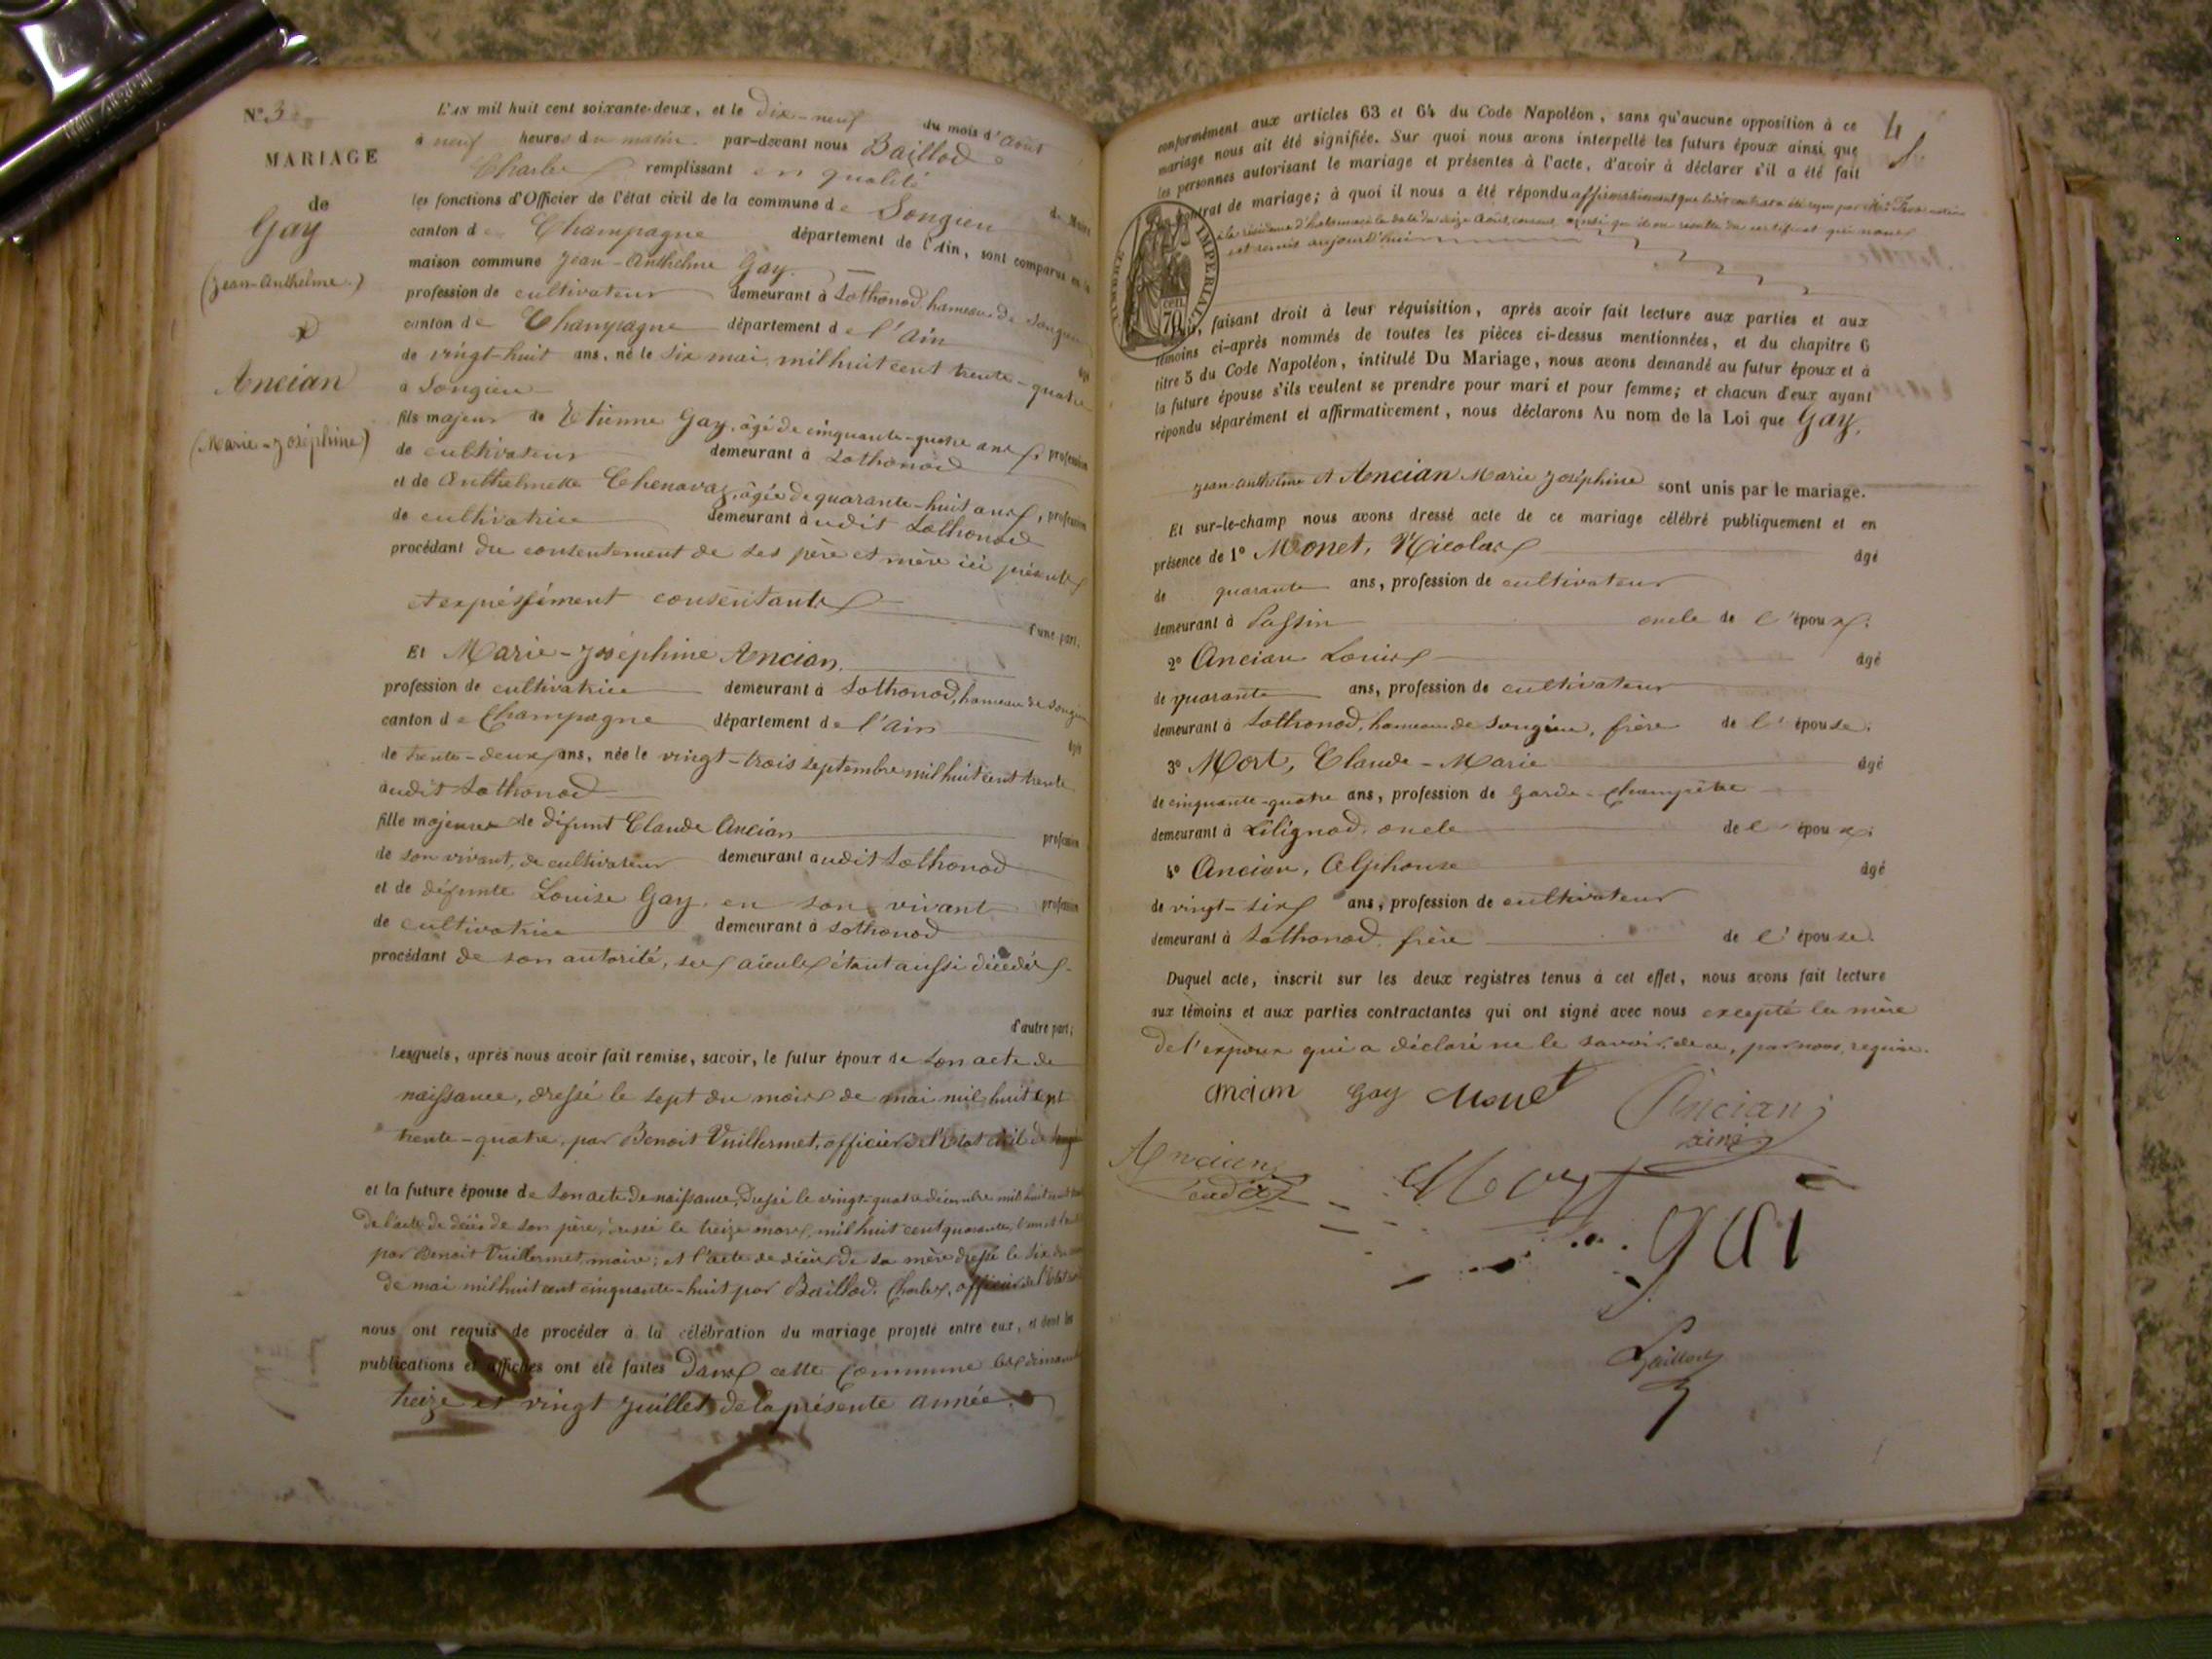 N° 3
MARIAGE
de
Gay
(Jean-Anthelme)
&
Ancian
(Marie-Joséphine)
L'AN mil huit cent soixante-deux, et le dix-neuf du mois d'août
à neuf heures du matin par-devant nous Baillod
Charles remplissant en qualité de Maire
les fonctions d'Officier de l'état civil de la commune de Songieu
canton de Champagne département de l'Ain, sont comparus en la
maison commune Jean-Anthelme Gay.
profession de cultivateur demeurant à Lothonod, hameau de Songieu
canton de Champagne département de l'Ain
âgé
de vingt-huit ans, né le six mai mil huit cent trente-quatre
à Songieu
fils majeur de Etienne Gay, âgé de cinquante-quatre ans, profession
de cultivateur demeurant à Lothonod
et de Anthelmette Chenavaz, âgée de quarante-huit ans, profession
de cultivatrice demeurant audit Lothonod
procédant du consentement de ses père et mère ici présents
et expressément consentants
d'une part.
Et Marie-Joséphine Ancian.
profession de cultivatrice demeurant à Lothonod, hameau de Songieu
canton de Champagne département de l'Ain
âgée
de trente-deux ans, née le vingt-trois septembre mil huit cent trente
audit Lothonod
fille majeure de défunt Claude Ancian profession
de son vivant, de cultivateur demeurant audit Lothonod
et de défunte Louise Gay, en son vivant profession
de cultivatrice demeurant à Lothonod
procédant de son autorité, ses aïeuls étant aussi décédés.
d'autre part;
Lesquels, après nous avoir fait remise, savoir, le futur époux de son acte de
naissance, dressé le sept du mois de mai mil huit cent
trente-quatre, par Benoit Vuillermet, officier de l'Etat civil de
et la future épouse de son acte de naissance, dressé le vingt-quatre décembre mil huit cent
de l'acte de décès de son père, dressé le treize mars, mil huit cent quarante
par Benoit Vuillermet, maire; et l'acte de décès de sa mère dressé le six du
de mai mil huit cent cinquante-huit par Baillod, Charles, officier de l'Etat
nous ont requis de procéder à la célébration du mariage projeté entre eux, et dont les
publications et affiches ont été faites dans cette commune les dimanches
treize et vingt juillet de la présente année.
4
conformément aux articles 63 et 64 du Code Napoléon, sans qu'aucune opposition à ce
mariage nous ait été signifiée. Sur quoi nous avons interpellé les futurs époux ainsi que
les personnes autorisant le mariage et présentes à l'acte, d'avoir à déclarer s'il a été fait
contrat de mariage; à quoi il nous a été répondu affirmativement que ledit contrat a été reçu par Me
à la résidence d'hotonnes à la date du seize août, courant, ainsi qu'il en résulte du certificat qui nous
est remis aujourd'hui
TIMBRE IMPERIAL
70 cen
faisant droit à leur réquisition, après avoir fait lecture aux parties et aux
témoins ci-après nommés de toutes les pièces ci-dessus mentionnées, et du chapitre 6
titre 5 du Code Napoléon, intitulé Du Mariage, nous avons demandé au futur époux et à
la future épouse s'ils veulent se prendre pour mari et pour femme; et chacun d'eux ayant
répondu séparément et affirmativement, nous déclarons Au nom de la Loi que Gay,
Jean-Anthelme et Ancian Marie Joséphine sont unis par le mariage.
Et sur-le-champ nous avons dressé acte de ce mariage célébré publiquement et en
présence de 1° Monet, Nicolas âgé
de quarante ans, profession de cultivateur
demeurant à Passin oncle de l'époux.
2° Ancian Louis âgé
de quarante ans, profession de cultivateur
demeurant à Lothonod, hameau de Songieu, frère de l'épouse.
3° Mort, Claude-Marie âgé
de cinquante-quatre ans, profession de garde-champêtre
demeurant à Lilignod, oncle de l'époux.
4° Ancian, Alphonse âgé
de vingt-six ans, profession de cultivateur
demeurant à Lothonod, frère de l'épouse.
Duquel acte, inscrit sur les deux registres tenus à cet effet, nous avons fait lecture
aux témoins et aux parties contractantes qui ont signé avec nous excepté la mère
de l'expoux qui a déclaré ne le savoir, de ce, par nous, requise.
ancian gay Monet Ancian
ainé
Ancian
cadet
Mort
gai
Baillod